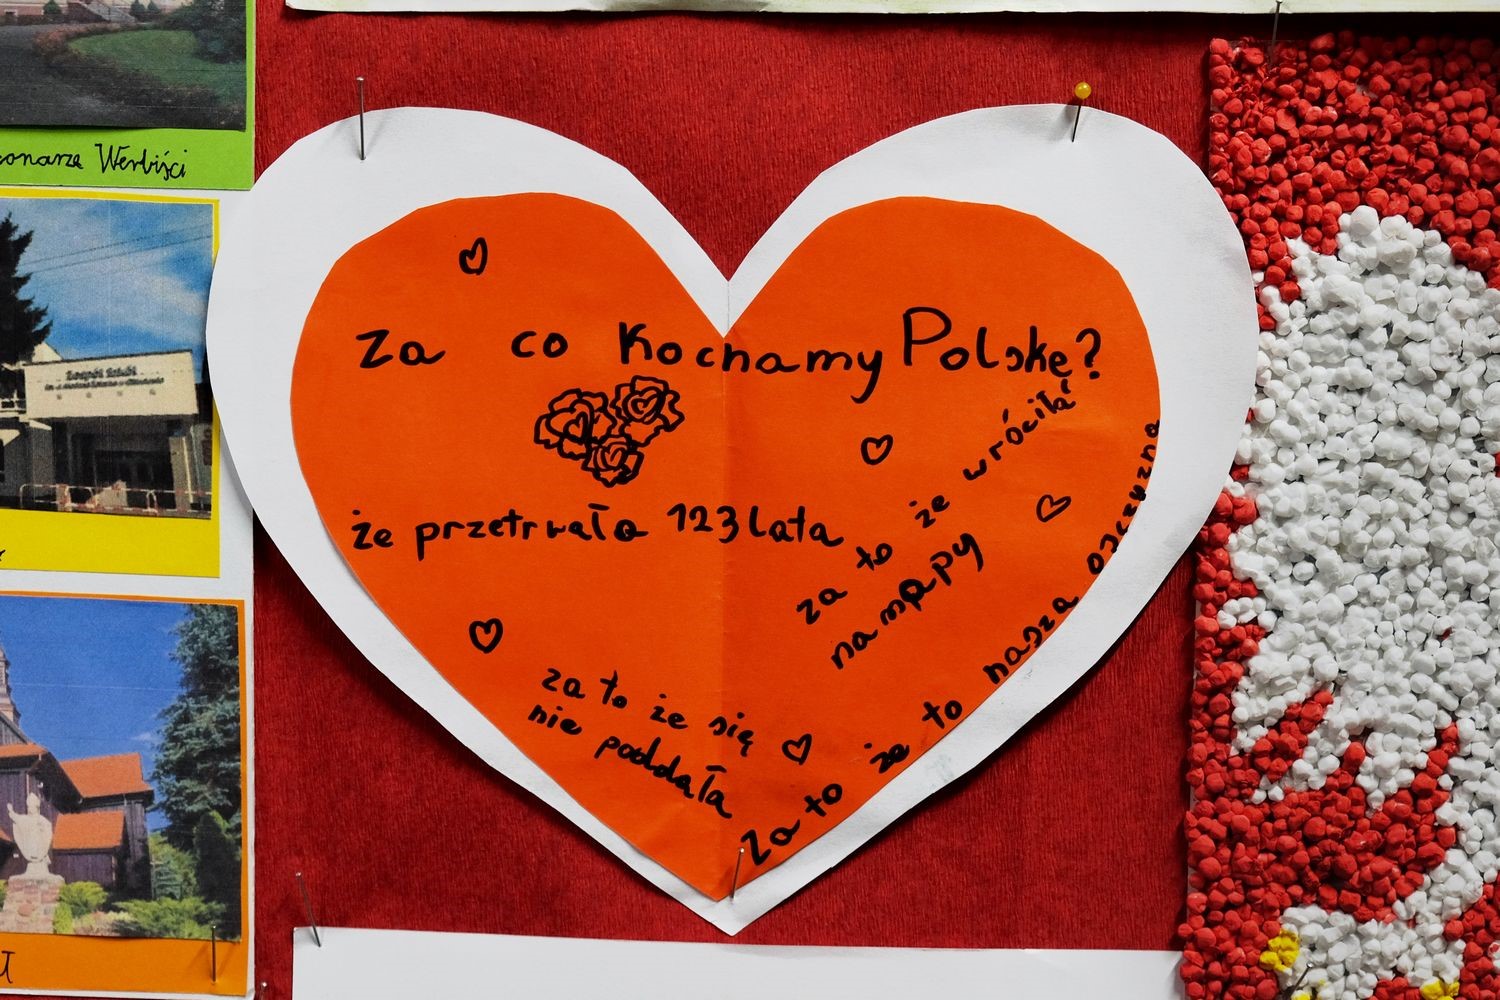 Werbiści
Zespół Szkół
Za co Kochamy Polskę?
że przetrwała 123 lata
za to że wróciła
na mapy
za to że się
nie poddała
Za to że to nasza ojczyzna